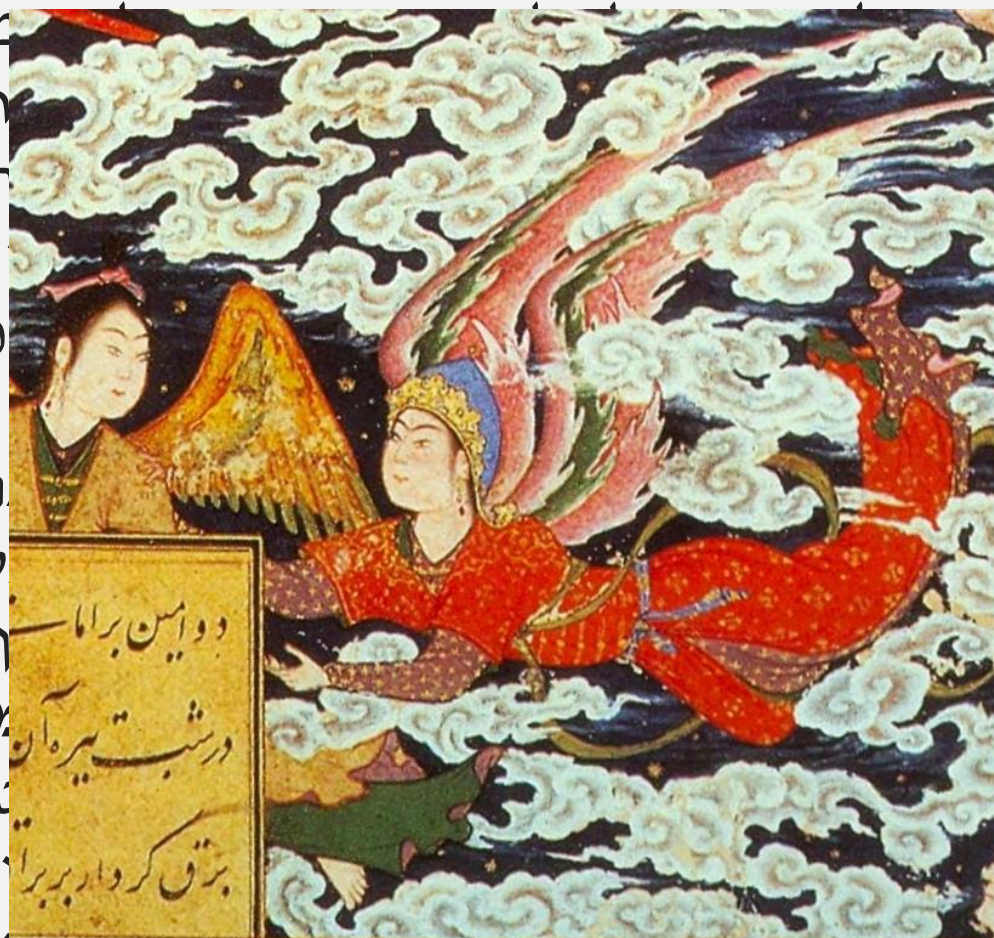 دو امین بر
در شب تیره آن
برق کردار بر